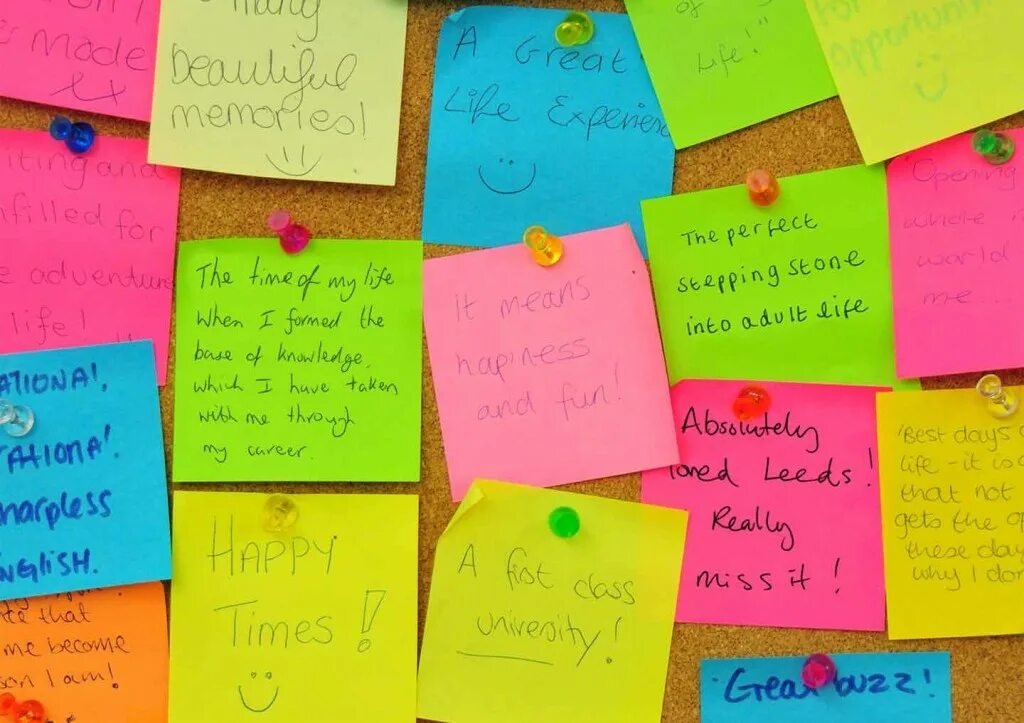 made
many
beautiful
memories!
A Great
Life Experien
of
Life!"
for
opportunit
iting and
filled for
e adventure
life!
The time of my life
when I formed the
base of knowledge,
which I have taken
with me through
my career.
It means
happiness
and fun!
The perfect
stepping stone
into adult life
'Opening
whole
world
me...
ATIONA!.
ATIONA!.
harpless
NGLISH.
Absolutely
loved Leeds!
Really
miss it!
'Best days
life - it is
that not
gets the op
these day
why I don
te that
me become
son I am!
Happy
Times!
A first class
university!
'Great buzz!